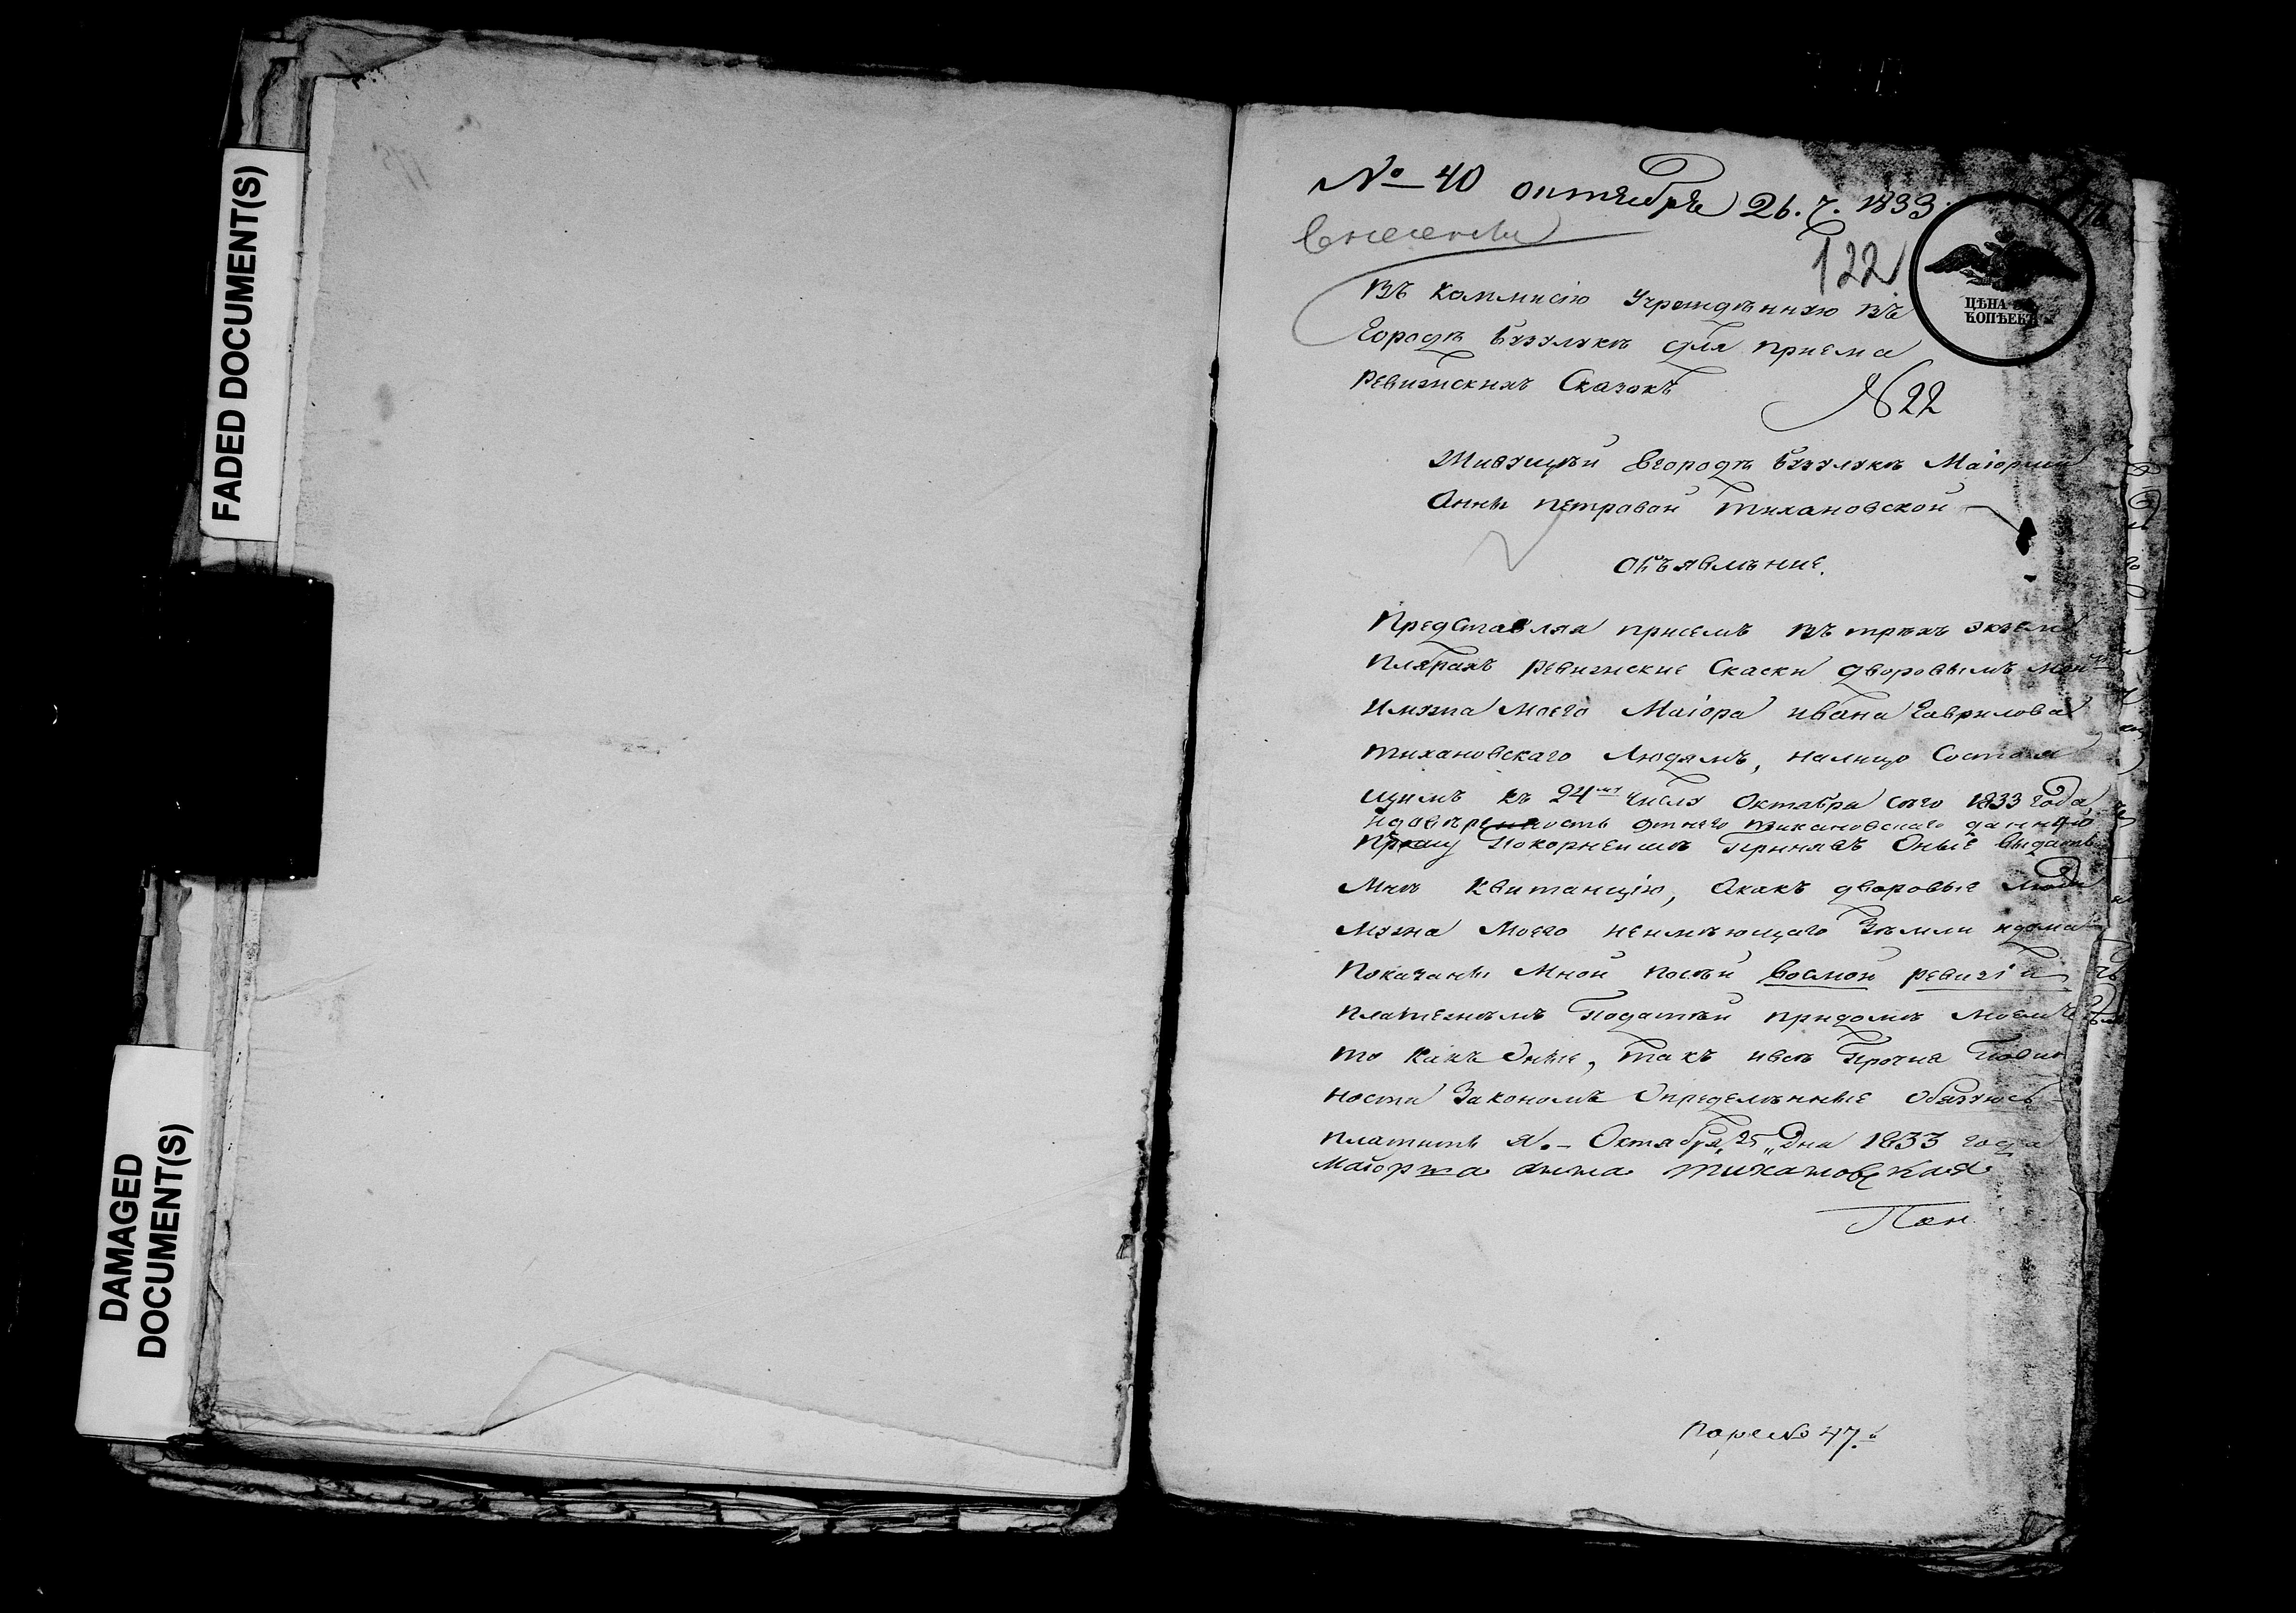 FADED DOCUMENT(S)
DAMAGED
DOCUMENT(S)
№ 40 октября 26. ч. 1833.
внесены
122
ЦѢНА
КОПѢЕКЪ
Въ коммисію Учрежденную въ
Городѣ Бузулукѣ для приема
Ревижскихъ Сказокъ
№ 22
Живущей вгородѣ Бузулукѣ Маіорши
Анны Петровой Тихановской
Объявлѣние.
Представляя присемъ въ трехъ экзем
плярахъ Ревижские Скаски дворовымъ моимъ
имужа моего Маіора ивана Гаврилова
Тихановскаго Людямъ, налицо Состоя
щимъ къ 24му числу Октября сего 1833 Года,
идовѣреность отнего Тихановскаго данную
Прошу Покорнеише Принявъ Оные выдать
Мнѣ Квитанцію, Акакъ дворовые люди
мужа Моего неимѣющаго Земли идома
Показаны Мной посей восмой ревизіи
платежемъ Податей придомѣ моемъ
то какъ Оные, такъ ивсѣ Прочия Повин
ности Закономъ Определѣнные Обязуюсь
платить я. Октября „25„ Дня 1833 года
Маіорша анна тихановская
Парев No 47.